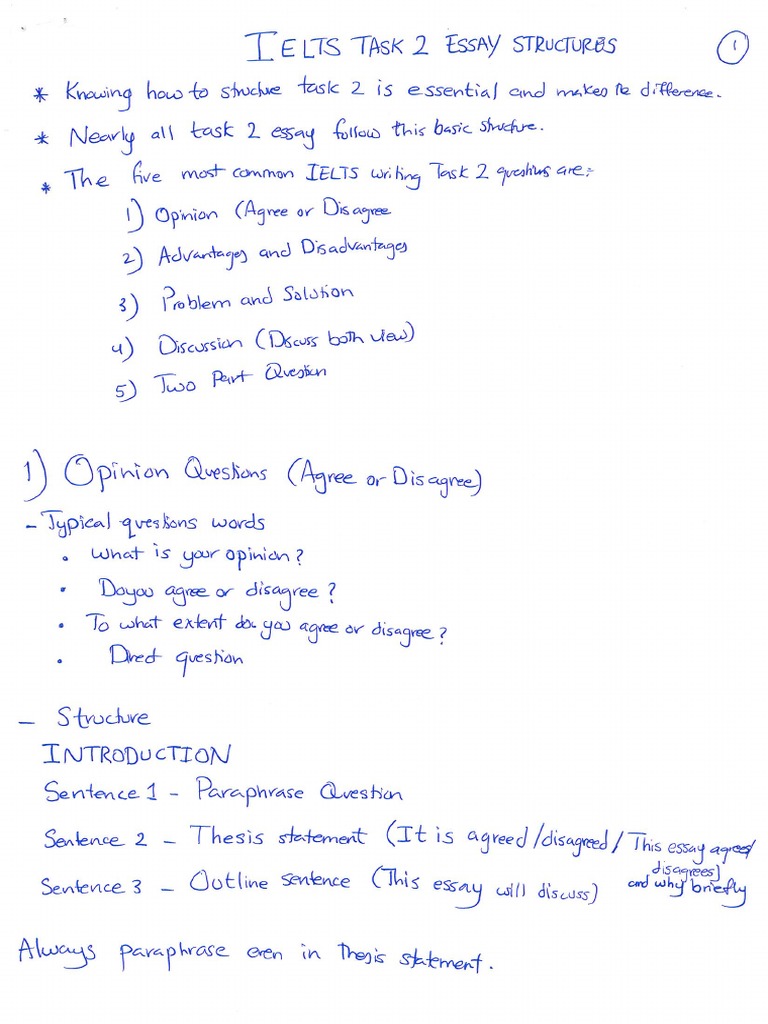 IELTS TASK 2 ESSAY STRUCTURES
1
* Knowing how to structure task 2 is essential and makes the difference.
* Nearly all task 2 essay follow this basic structure.
* The five most common IELTS writing Task 2 questions are:
1) Opinion (Agree or Disagree
2) Advantages and Disadvantages
3) Problem and Solution
4) Discussion (Discuss both view)
5) Two Part Question
1) Opinion Questions (Agree or Disagree)
- Typical questions words
• What is your opinion?
• Do you agree or disagree?
• To what extent do you agree or disagree?
• Direct question
- Structure
INTRODUCTION
Sentence 1 - Paraphrase Question
Sentence 2 - Thesis statement (It is agreed/disagreed/ This essay agrees/
disagrees)
and why briefly
Sentence 3 - Outline sentence (This essay will discuss)
Always paraphrase even in thesis statement.